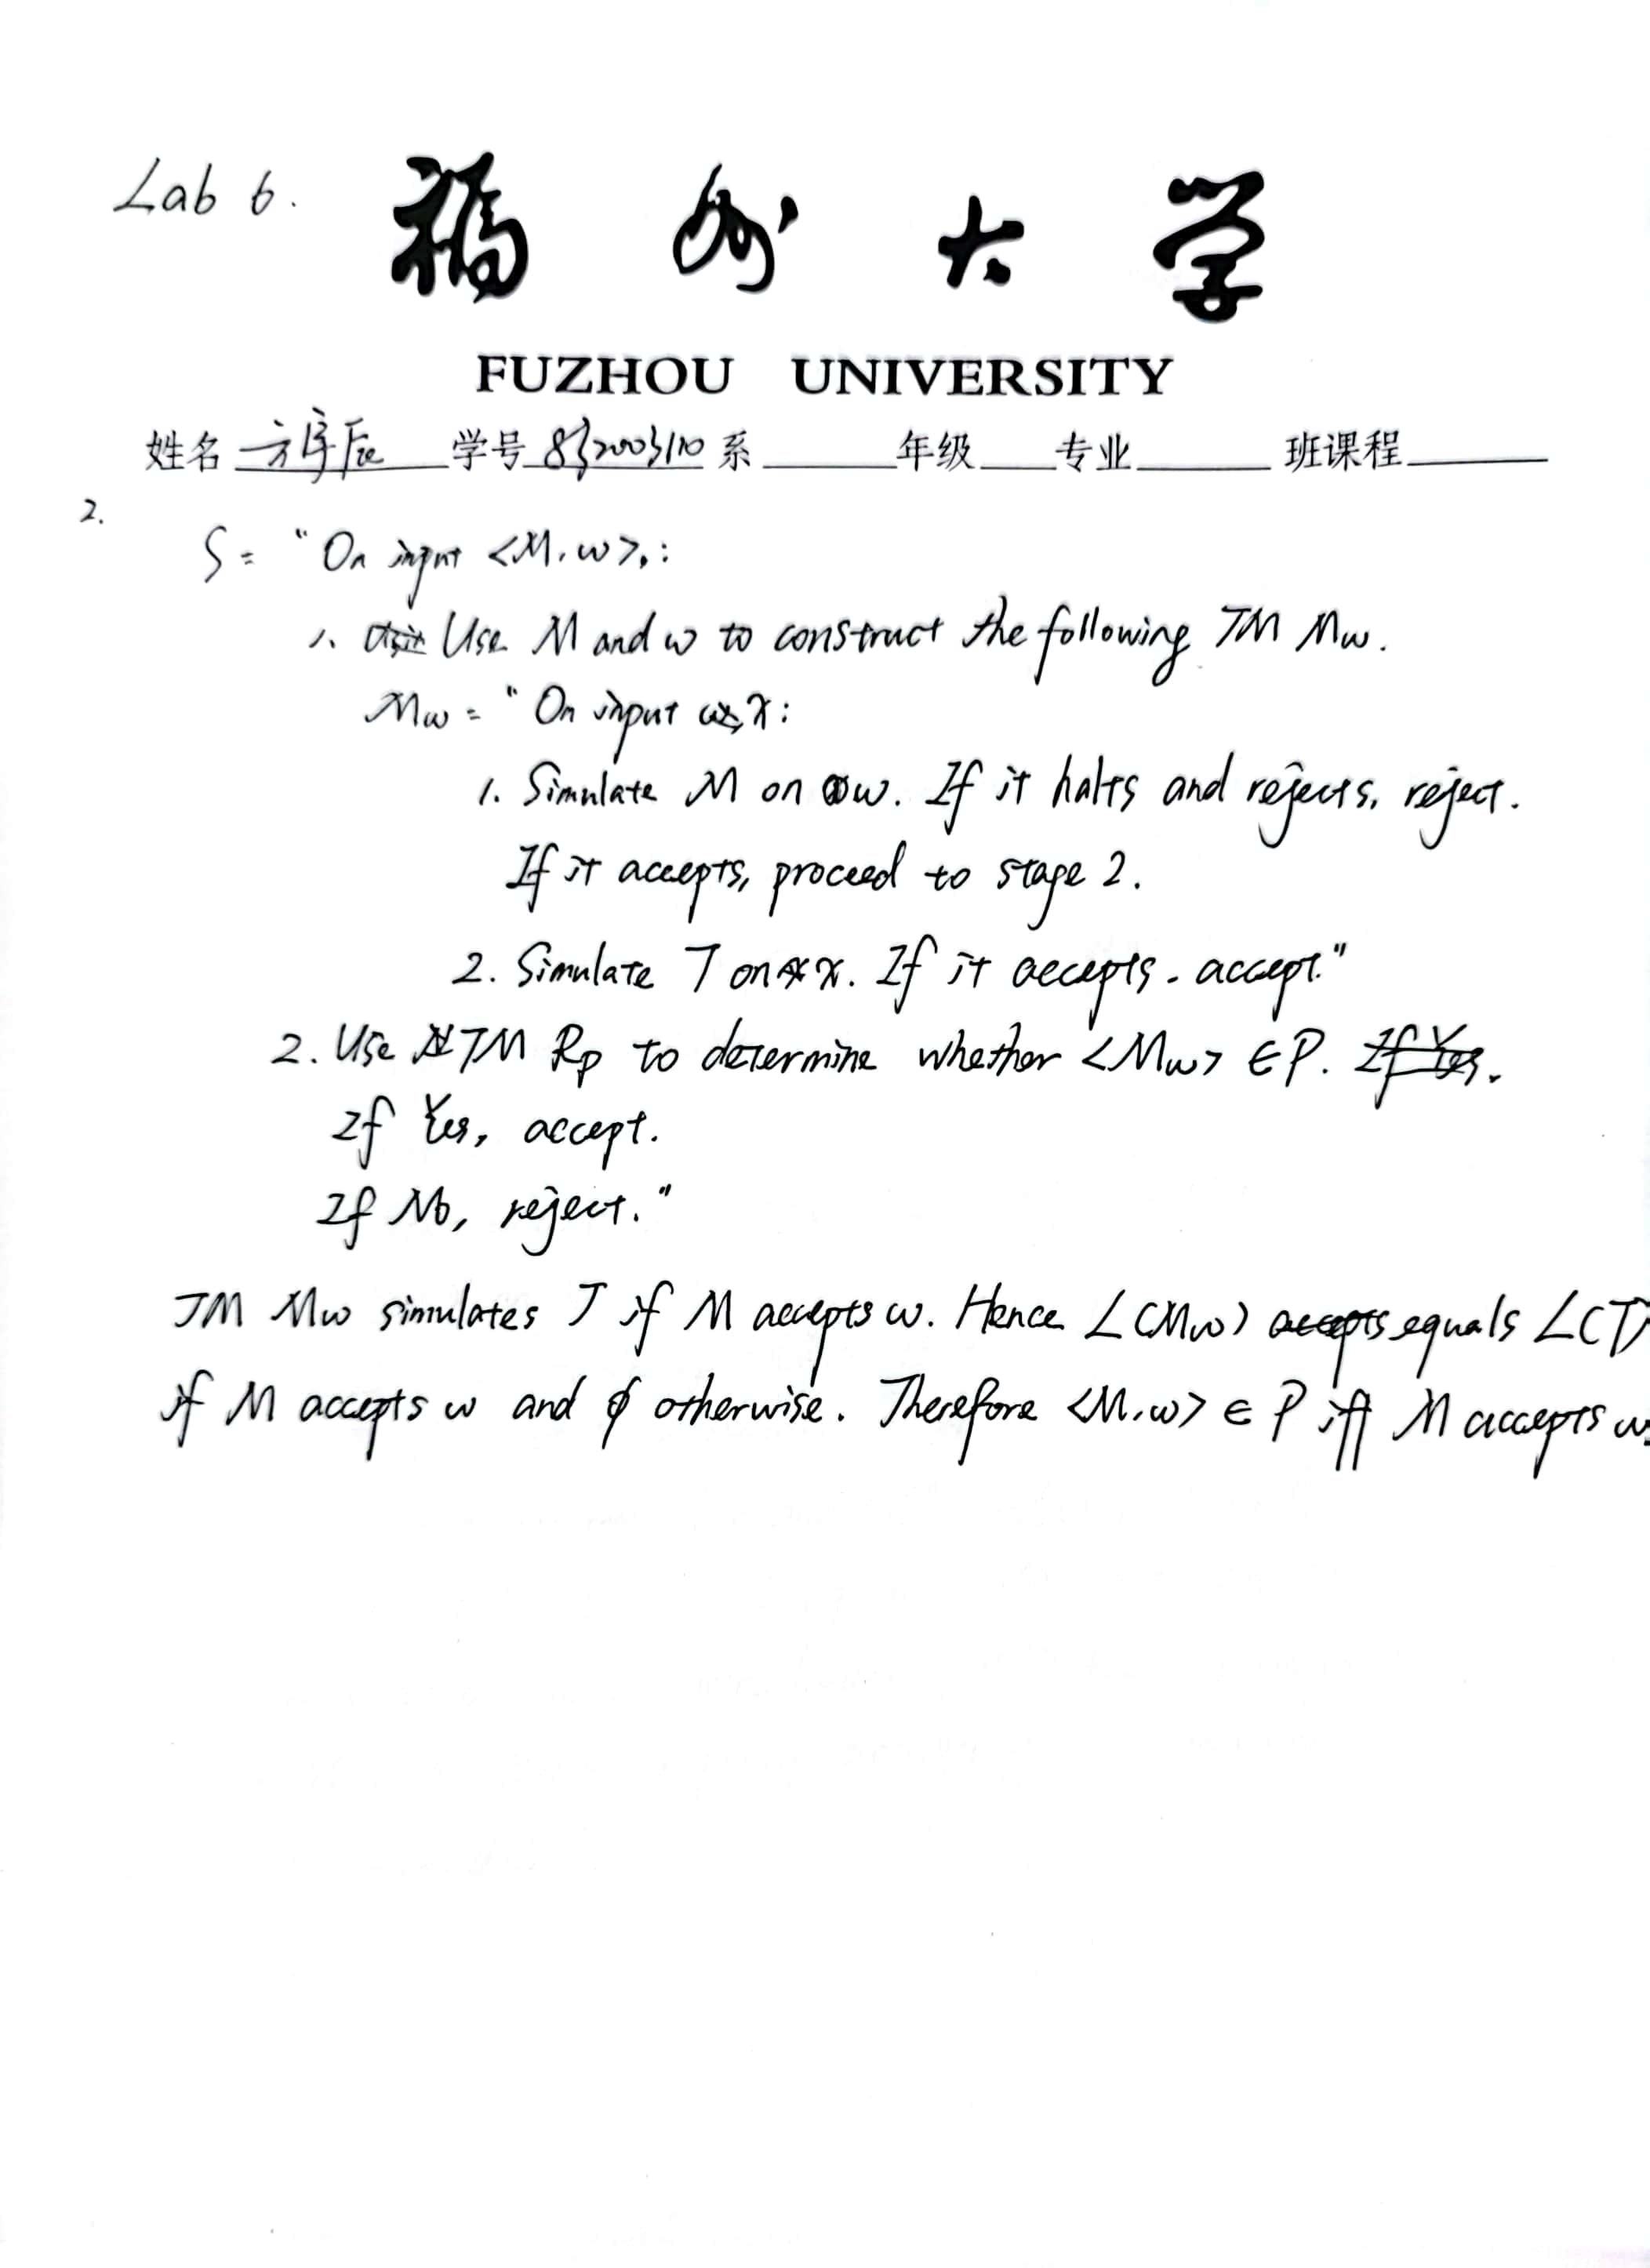 Lab 6.
福州大学
FUZHOU UNIVERSITY
姓名 方 学号 系 年级 专业 班课程
2.
S = "On input <M, w>:
1. Use M and w to construct the following TM Mw.
Mw = "On input x:
1. Simulate M on w. If it halts and rejects, reject.
If it accepts, proceed to stage 2.
2. Simulate T on x. If it accepts, accept."
2. Use TM Rp to determine whether <Mw> ∈ P. If Yes.
If Yes, accept.
If No, reject."
TM Mw simulates T if M accepts w. Hence L(Mw) accepts equals L(T)
if M accepts w and ϕ otherwise. Therefore <M, w> ∈ P iff M accepts w.